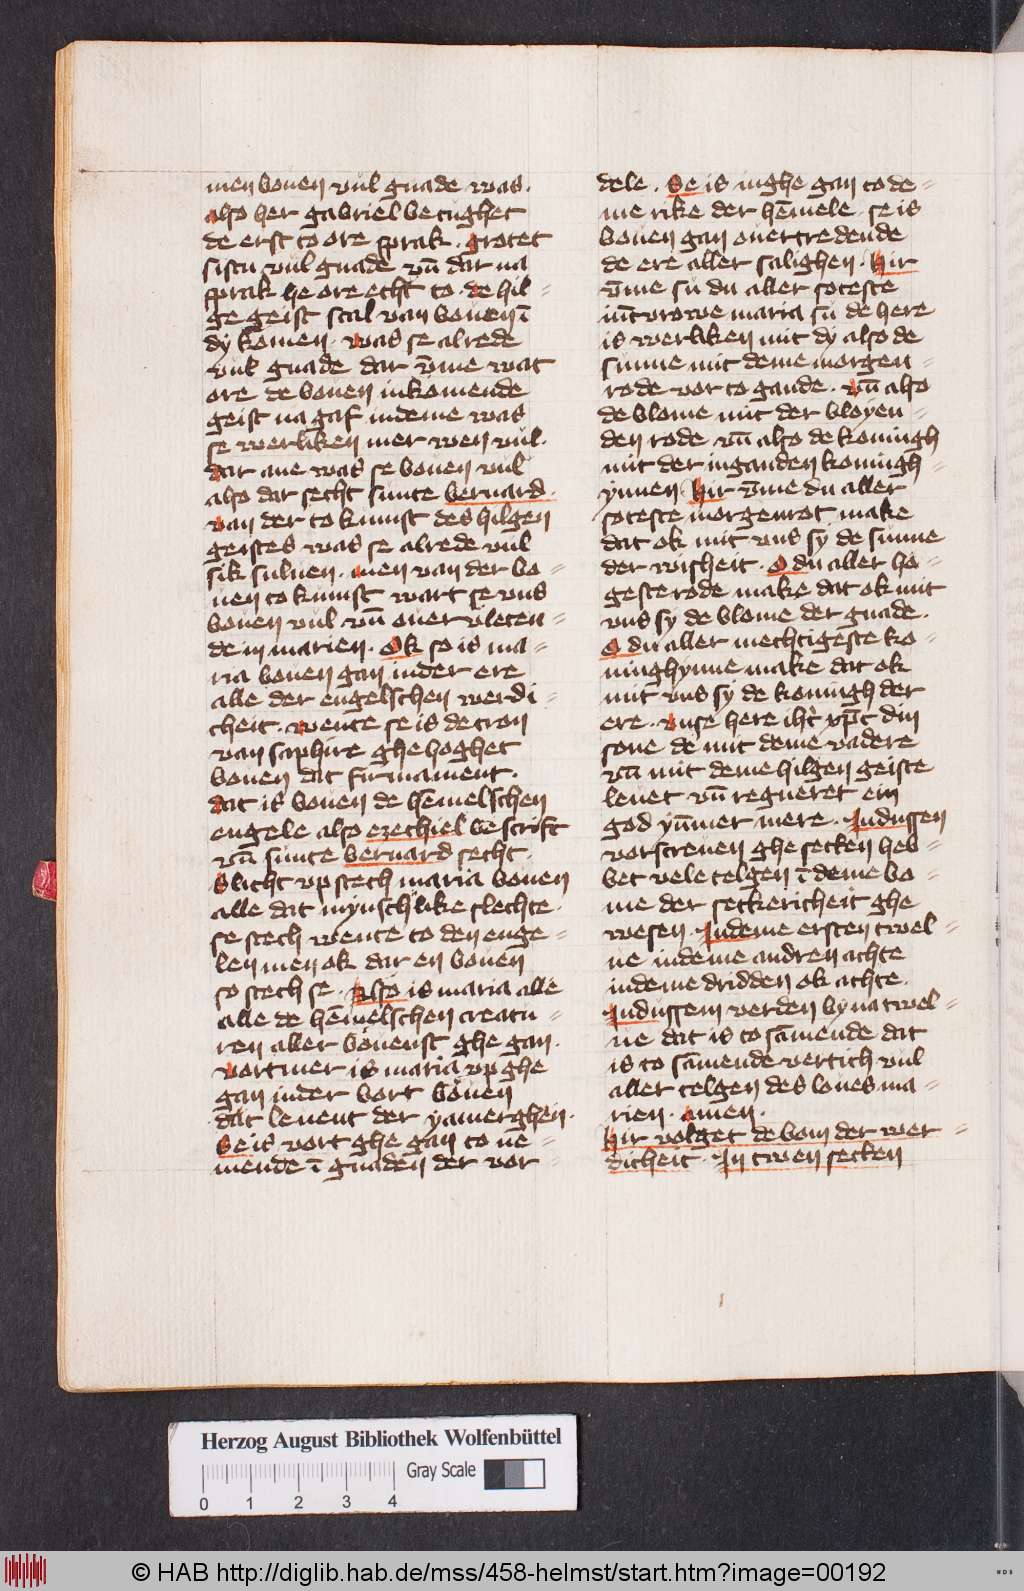 men bouen vul gnade was.
also her gabriel betughet
de erst to ore sprak. grotet
sistu vul gnade vn̄ dar na
sprak he ore echt to. de hil=
ge geist scal van bouen ī
dy komen. was se alrede
vul gnade dar v̄me wat
ore de bouen inkomende
geist na gaf indeme was
se werliken mer wen vul.
dar ane was se bouen vul
also dar secht sunte bernard.
van der to kumst des hilgen
geistes was se alrede vul
sik suluen. men van der bo=
uen to kumst wart se vns
bouen vul vn̄ ouer vleten=
de in marien. Ok so is ma=
ria bouen gan inder ere
alle der engelschen werdi=
cheit. wente se is de tron
van saphire ghe hoghet
bouen dat firmament.
dat is bouen de hēmelschen
engele also ezechiel bescrift
vn̄ sunte bernard secht.
Slicht vpstech maria bouen
alle dat mynschlike slechte.
se stech wente to den enge=
len men ok dar en bouen
so stech se. Also is maria alle
alle de hēmelschen creatu=
ren aller bouenst ghe gan.
vortmer is maria vp ghe
gan inder vort bouen
dat leuent der yamerghen.
Se is vort ghe gan to ne=
mende ī gnaden der vor=
dele. Se is inghe gan to de=
me rike der hēmele. se is
bouen gan ouertredende
de ere aller salighen. Hir
v̄me su du aller soteste
iūcvrowe maria su de here
is werliken mit dy also de
sunne mit deme morgen=
rode vor to gande. vn̄ also
de blome mit der bloyen=
den rode vn̄ also de koningh
mit der inganden koningh=
ynnen. Hir v̄me du aller
soteste morgenrot make
dat ok mit vns sy de sunne
der wisheit. O du aller ho=
geste rode make dat ok mit
vns sy de blome der gnade.
O du aller mechtigeste ko=
ninghynne make dat ok
mit vns sy de koningh der
ere. vnse here ihc xpc din
sone de mit deme vadere
vn̄ mit deme hilgen geiste
leuet vn̄ regneret ein
god ym̄mer mere. Indussen
vorscreuen ghe secken heb=
bet vele telgen ī deme bo=
me der seckericheit ghe
wesen. Indeme ersten twel=
ue indeme andren achte
indeme dridden ok achte.
Indussem verden byna twel=
ue dat is to sāmende dat
is to sāmende vertich vul
aller telgen des loues ma=
rien. amen.
Hir volget de bom der wer=
dicheit. In twen secken
Herzog August Bibliothek Wolfenbüttel
Gray Scale
0 1 2 3 4
© HAB http://diglib.hab.de/mss/458-helmst/start.htm?image=00192